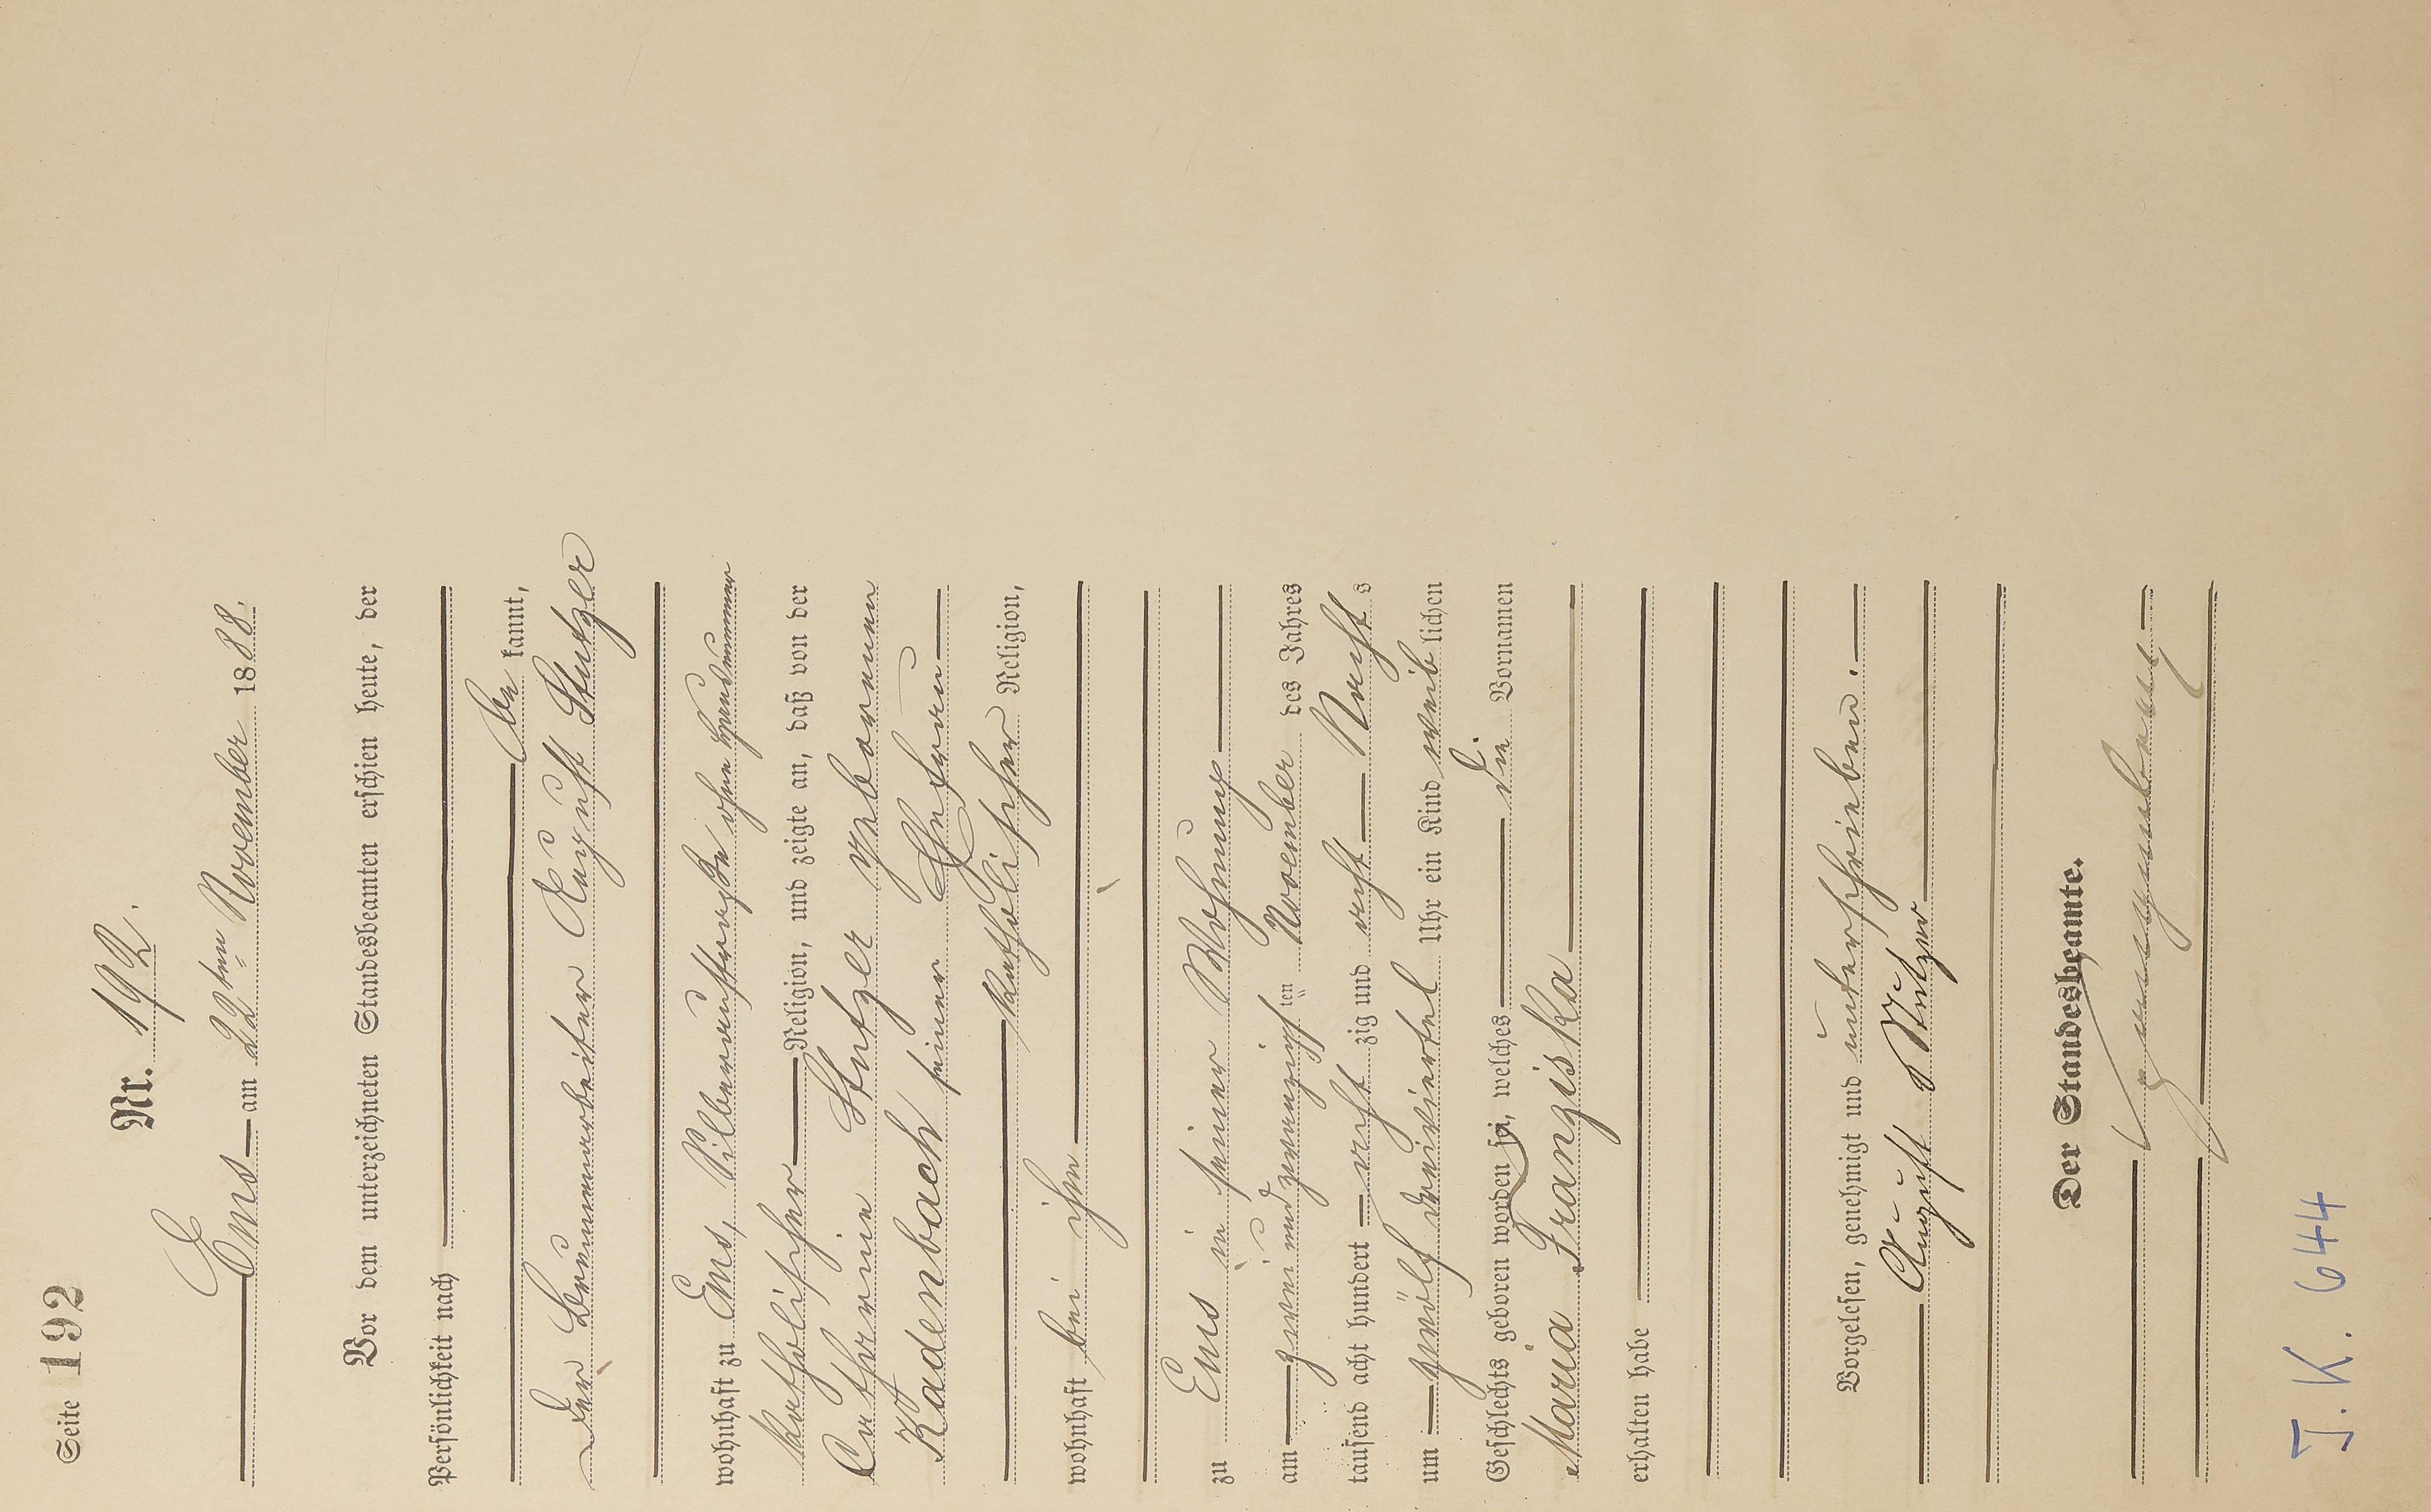 Seite 192
Nr. 192.
Ems am 22ten November 1888.
Vor dem unterzeichneten Standesbeamten erschien heute, der
Persönlichkeit nach
be kannt,
der Brunnenarbeiter August Stutzer
wohnhaft zu Ems, Silberaustraße ohne Hausnummer
katholischer Religion, und zeigte an, daß von der
Catharine Stutzer geborenen
Kadenbach seiner Ehefrau
katholischer Religion,
wohnhaft bei ihm
zu Ems in seiner Wohnung
am zwei und zwanzigsten November des Jahres
tausend acht hundert acht zig und acht Nachts
um zwölf dreiviertel Uhr ein Kind weib lichen
Geschlechts geboren worden sei, welches die Vornamen
Maria Franziska
erhalten habe
Vorgelesen, genehmigt und unterschrieben.
August Stutzer
Der Standesbeamte.
J. K. 644